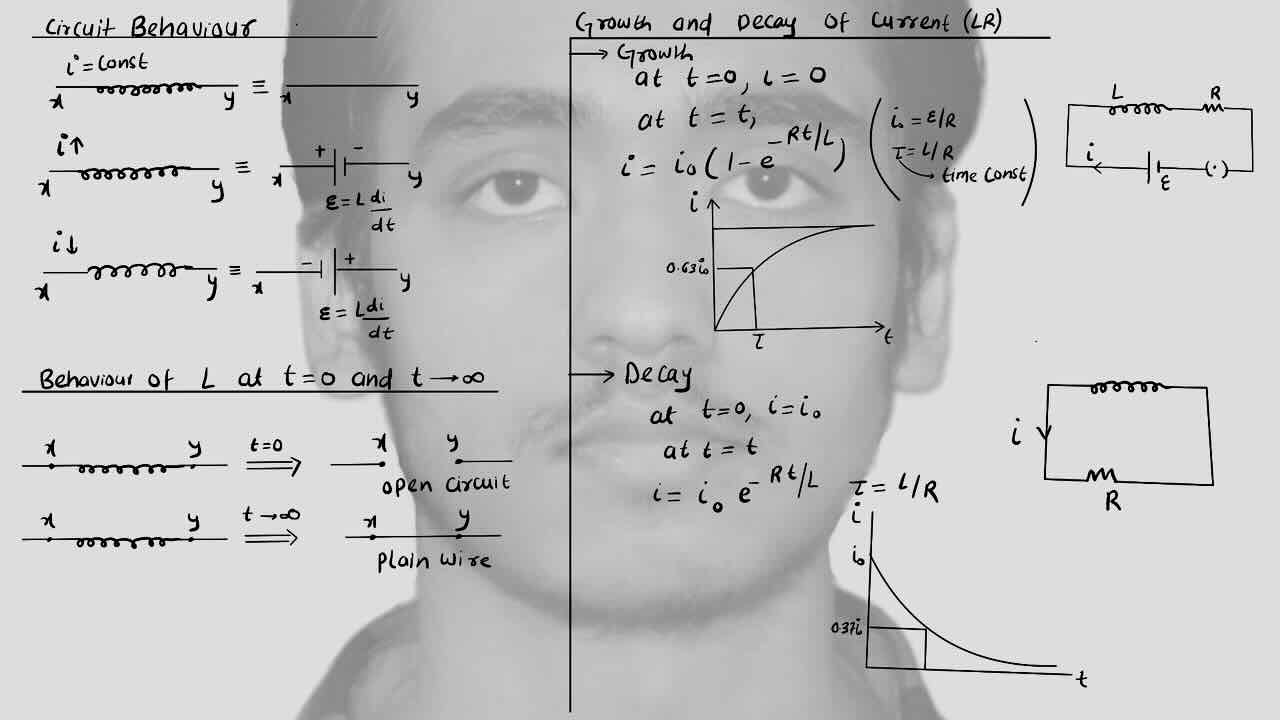 Circuit Behaviour
i = const
x y ≡ x y
i↑
x y ≡ x + - y
ε = L di/dt
i↓
x y ≡ x - + y
ε = L di/dt
Behaviour of L at t=0 and t→∞
x y t=0 ⇒ x y
open circuit
x y t→∞ ⇒ x y
Plain wire
Growth and Decay of Current (LR)
→ Growth
at t=0, i=0
at t=t,
i = i₀(1-e^-Rt/L)
(i₀ = ε/R
τ = L/R
→ time const)
L R
i ε (·)
i
0.63i₀
τ t
→ Decay
at t=0, i=i₀
at t=t
i = i₀ e^-Rt/L τ = L/R
i
R
i
i₀
0.37i
t